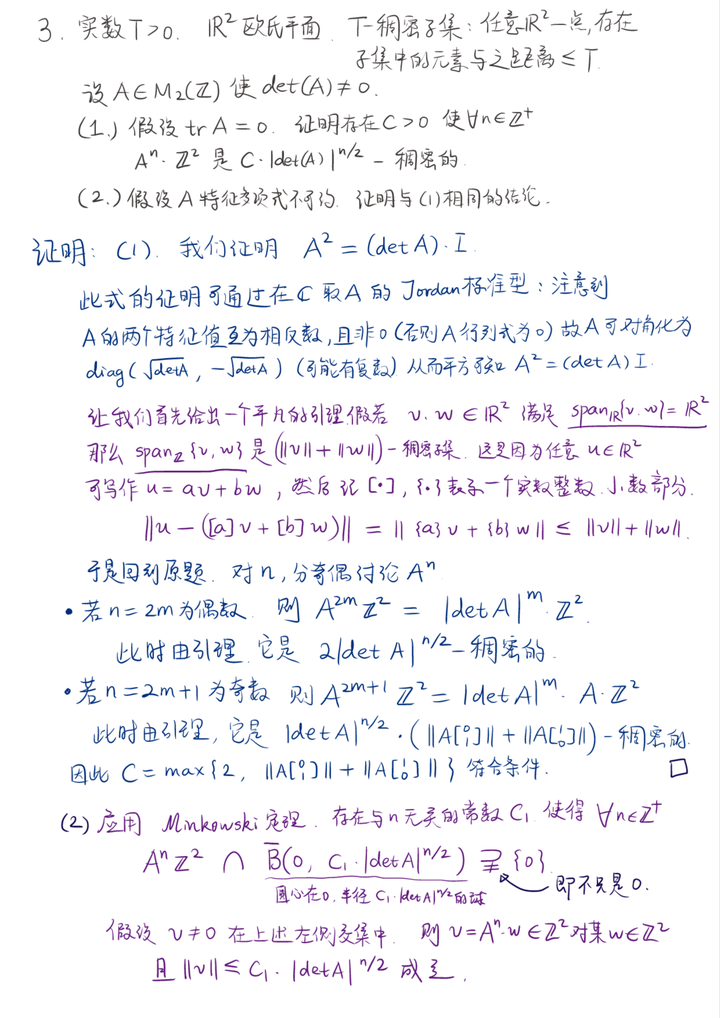 3. 实数 T>0. ℝ² 欧氏平面. T-稠密子集: 任意ℝ²一点, 存在
子集中的元素与之距离 ≤ T.
设 A∈M₂(ℤ) 使 det(A) ≠ 0.
(1.) 假设 tr A = 0. 证明存在 C>0 使 ∀n∈ℤ⁺
Aⁿ·ℤ² 是 C·|det(A)|^{n/2} - 稠密的.
(2.) 假设 A 特征多项式不可约. 证明与(1)相同的结论.
证明: (1). 我们证明 A² = (det A)·I.
此式的证明可通过在 ℂ 取 A 的 Jordan 标准型: 注意到
A 的两个特征值互为相反数, 且非 0 (否则 A 行列式为 0) 故 A 可对角化为
diag(√detA, -√detA) (可能有复数) 从而平方可知 A² = (det A) I.
让我们首先给出一个平凡的引理 假若 v.w ∈ ℝ² 满足 span_ℝ{v.w} = ℝ²
那么 span_ℤ{v,w} 是 (‖v‖+‖w‖)-稠密子集. 这是因为任意 u∈ℝ²
可写作 u = av + bw, 然后记 [•], {•} 表示一个实数整数.小数部分.
‖u - ([a]v + [b]w)‖ = ‖{a}v + {b}w‖ ≤ ‖v‖+‖w‖.
于是回到原题. 对 n, 分奇偶讨论 Aⁿ
• 若 n=2m 为偶数. 则 A^{2m}ℤ² = |det A|^m·ℤ².
此时由引理, 它是 2|det A|^{n/2}-稠密的.
• 若 n=2m+1 为奇数 则 A^{2m+1}ℤ² = |det A|^m·A·ℤ²
此时由引理, 它是 |detA|^{n/2}·(‖A[0 1]‖+‖A[1 0]‖)-稠密的.
因此 C = max{2, ‖A[0 1]‖+‖A[1 0]‖} 符合条件. □
(2) 应用 Minkowski 定理. 存在与 n 无关的常数 C₁ 使得 ∀n∈ℤ⁺
Aⁿℤ² ∩ B̄(0, C₁·|detA|^{n/2}) ⊋ {0}.
圆心在0, 半径 C₁·|detA|^{n/2} 的球
即不只是 0.
假设 v≠0 在上述左侧交集中. 则 v=Aⁿ·w∈ℤ² 对某 w∈ℤ²
且 ‖v‖ ≤ C₁·|detA|^{n/2} 成立.